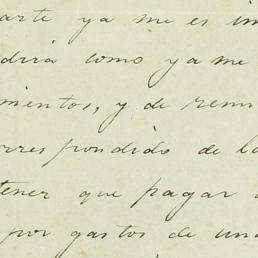 arte ya me es im
drá como ya me
mientos, y de remi
rres pondido de la
tener que pagar
por gastos de una